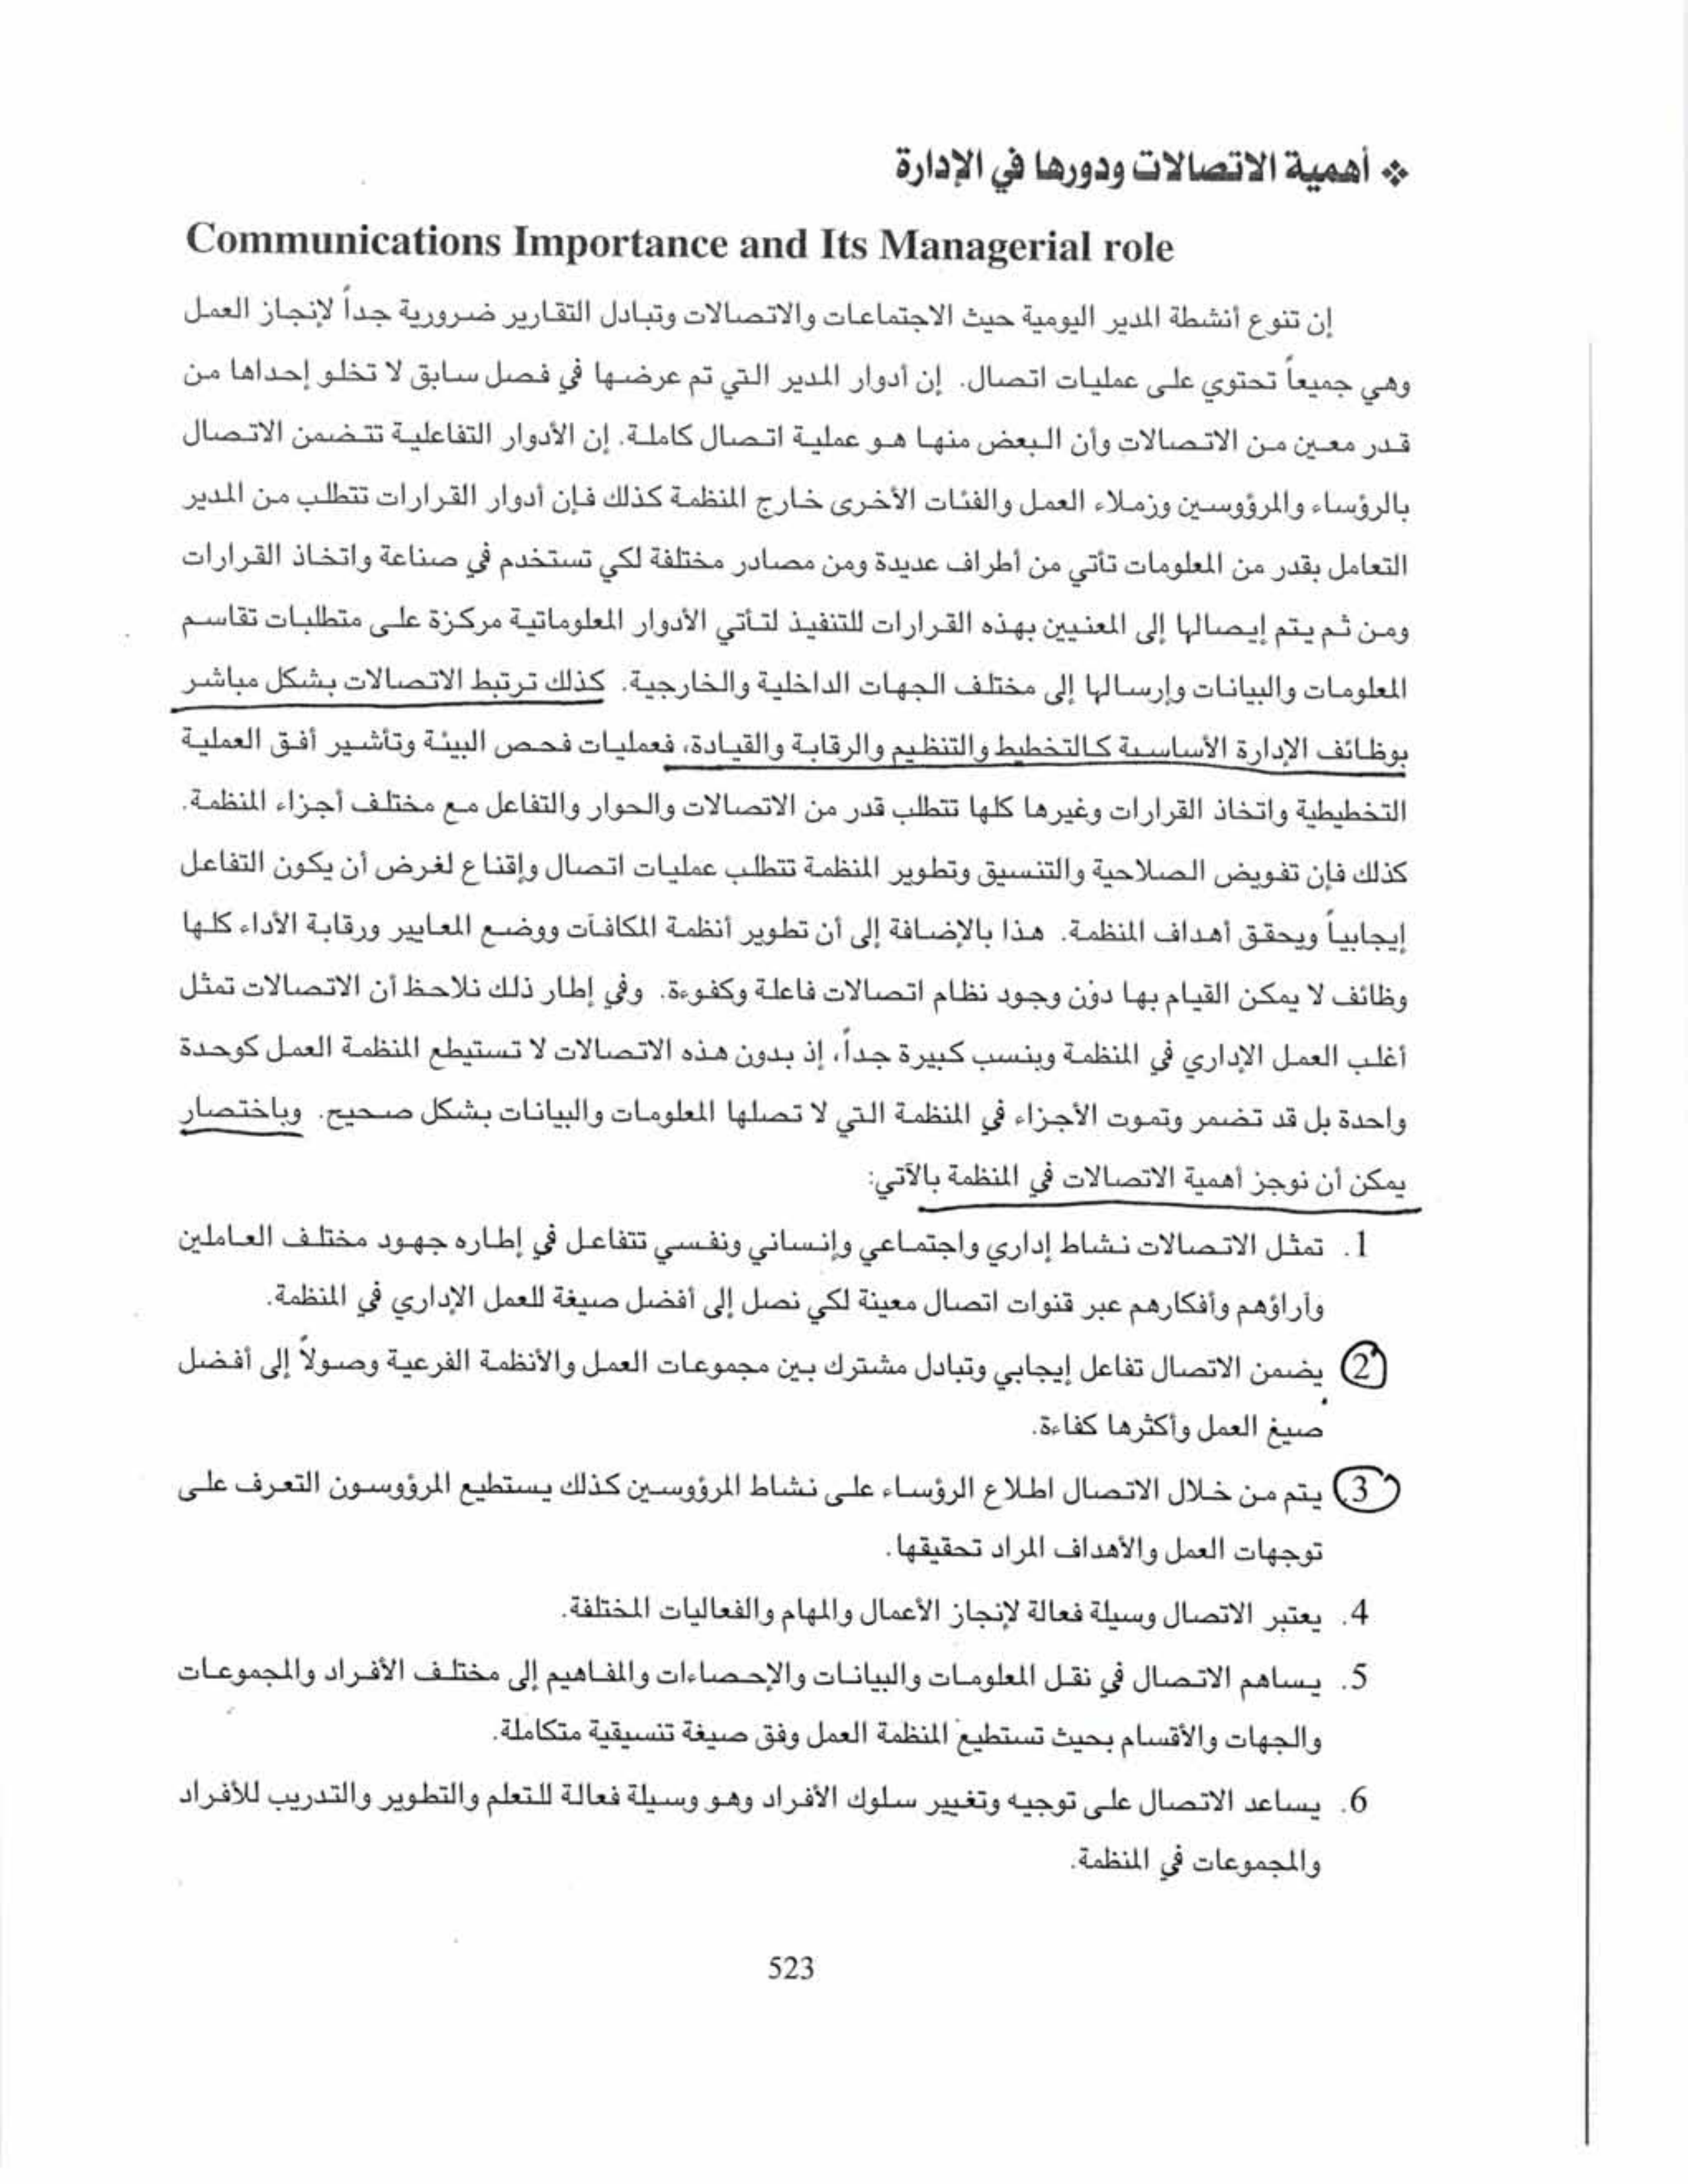 ❖ أهمية الاتصالات ودورها في الإدارة
Communications Importance and Its Managerial role
إن تنوع أنشطة المدير اليومية حيث الاجتماعات والاتصالات وتبادل التقارير ضرورية جداً لإنجاز العمل
وهي جميعاً تحتوي على عمليات اتصال. إن أدوار المدير التي تم عرضها في فصل سابق لا تخلو إحداها من
قدر معين من الاتصالات وأن البعض منها هو عملية اتصال كاملة. إن الأدوار التفاعلية تتضمن الاتصال
بالرؤساء والمرؤوسين وزملاء العمل والفئات الأخرى خارج المنظمة كذلك فإن أدوار القرارات تتطلب من المدير
التعامل بقدر من المعلومات تأتي من أطراف عديدة ومن مصادر مختلفة لكي تستخدم في صناعة واتخاذ القرارات
ومن ثم يتم إيصالها إلى المعنيين بهذه القرارات للتنفيذ لتأتي الأدوار المعلوماتية مركزة على متطلبات تقاسم
المعلومات والبيانات وإرسالها إلى مختلف الجهات الداخلية والخارجية. كذلك ترتبط الاتصالات بشكل مباشر
بوظائف الإدارة الأساسية كالتخطيط والتنظيم والرقابة والقيادة، فعمليات فحص البيئة وتأشير أفق العملية
التخطيطية واتخاذ القرارات وغيرها كلها تتطلب قدر من الاتصالات والحوار والتفاعل مع مختلف أجزاء المنظمة.
كذلك فإن تفويض الصلاحية والتنسيق وتطوير المنظمة تتطلب عمليات اتصال وإقناع لغرض أن يكون التفاعل
إيجابياً ويحقق أهداف المنظمة. هذا بالإضافة إلى أن تطوير أنظمة المكافآت ووضع المعايير ورقابة الأداء كلها
وظائف لا يمكن القيام بها دون وجود نظام اتصالات فاعلة وكفوءة. وفي إطار ذلك نلاحظ أن الاتصالات تمثل
أغلب العمل الإداري في المنظمة وبنسب كبيرة جداً، إذ بدون هذه الاتصالات لا تستيطع المنظمة العمل كوحدة
واحدة بل قد تضمر وتموت الأجزاء في المنظمة التي لا تصلها المعلومات والبيانات بشكل صحيح. وباختصار
يمكن أن نوجز أهمية الاتصالات في المنظمة بالآتي:
1. تمثل الاتصالات نشاط إداري واجتماعي وإنساني ونفسي تتفاعل في إطاره جهود مختلف العاملين
وآراؤهم وأفكارهم عبر قنوات اتصال معينة لكي نصل إلى أفضل صيغة للعمل الإداري في المنظمة.
2 يضمن الاتصال تفاعل إيجابي وتبادل مشترك بين مجموعات العمل والأنظمة الفرعية وصولاً إلى أفضل
صيغ العمل وأكثرها كفاءة.
3. يتم من خلال الاتصال اطلاع الرؤساء على نشاط المرؤوسين كذلك يستطيع المرؤوسون التعرف على
توجهات العمل والأهداف المراد تحقيقها.
4. يعتبر الاتصال وسيلة فعالة لإنجاز الأعمال والمهام والفعاليات المختلفة.
5. يساهم الاتصال في نقل المعلومات والبيانات والإحصاءات والمفاهيم إلى مختلف الأفراد والمجموعات
والجهات والأقسام بحيث تستطيع المنظمة العمل وفق صيغة تنسيقية متكاملة.
6. يساعد الاتصال على توجيه وتغيير سلوك الأفراد وهو وسيلة فعالة للتعلم والتطوير والتدريب للأفراد
والمجموعات في المنظمة.
523